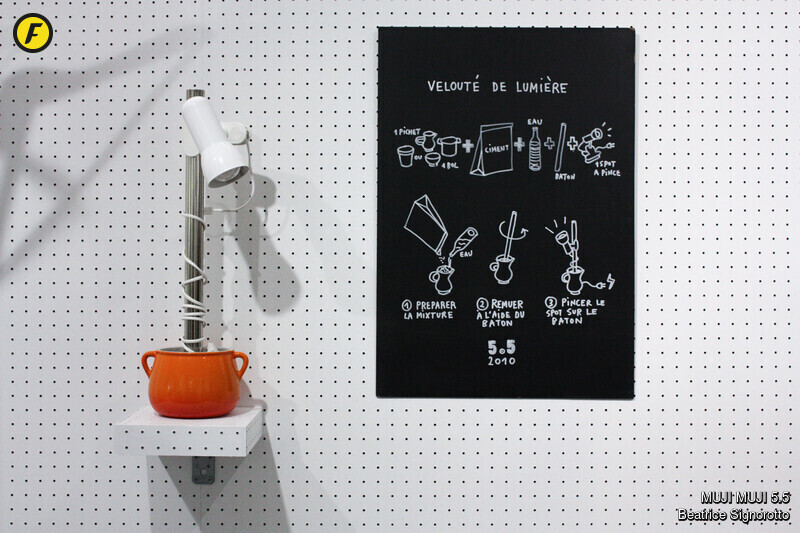 F
VELOUTÉ DE LUMIÈRE
1 PICHET
OU
1 BOL
+
CIMENT
+
EAU
+
BATON
+
1 SPOT
A PINCE
EAU
1 PREPARER
LA MIXTURE
2 REMUER
À L'AIDE DU
BATON
3 PINCER LE
SPOT SUR LE
BATON
5.5
2010
MUJI MUJI 5.5
Beatrice Signorotto